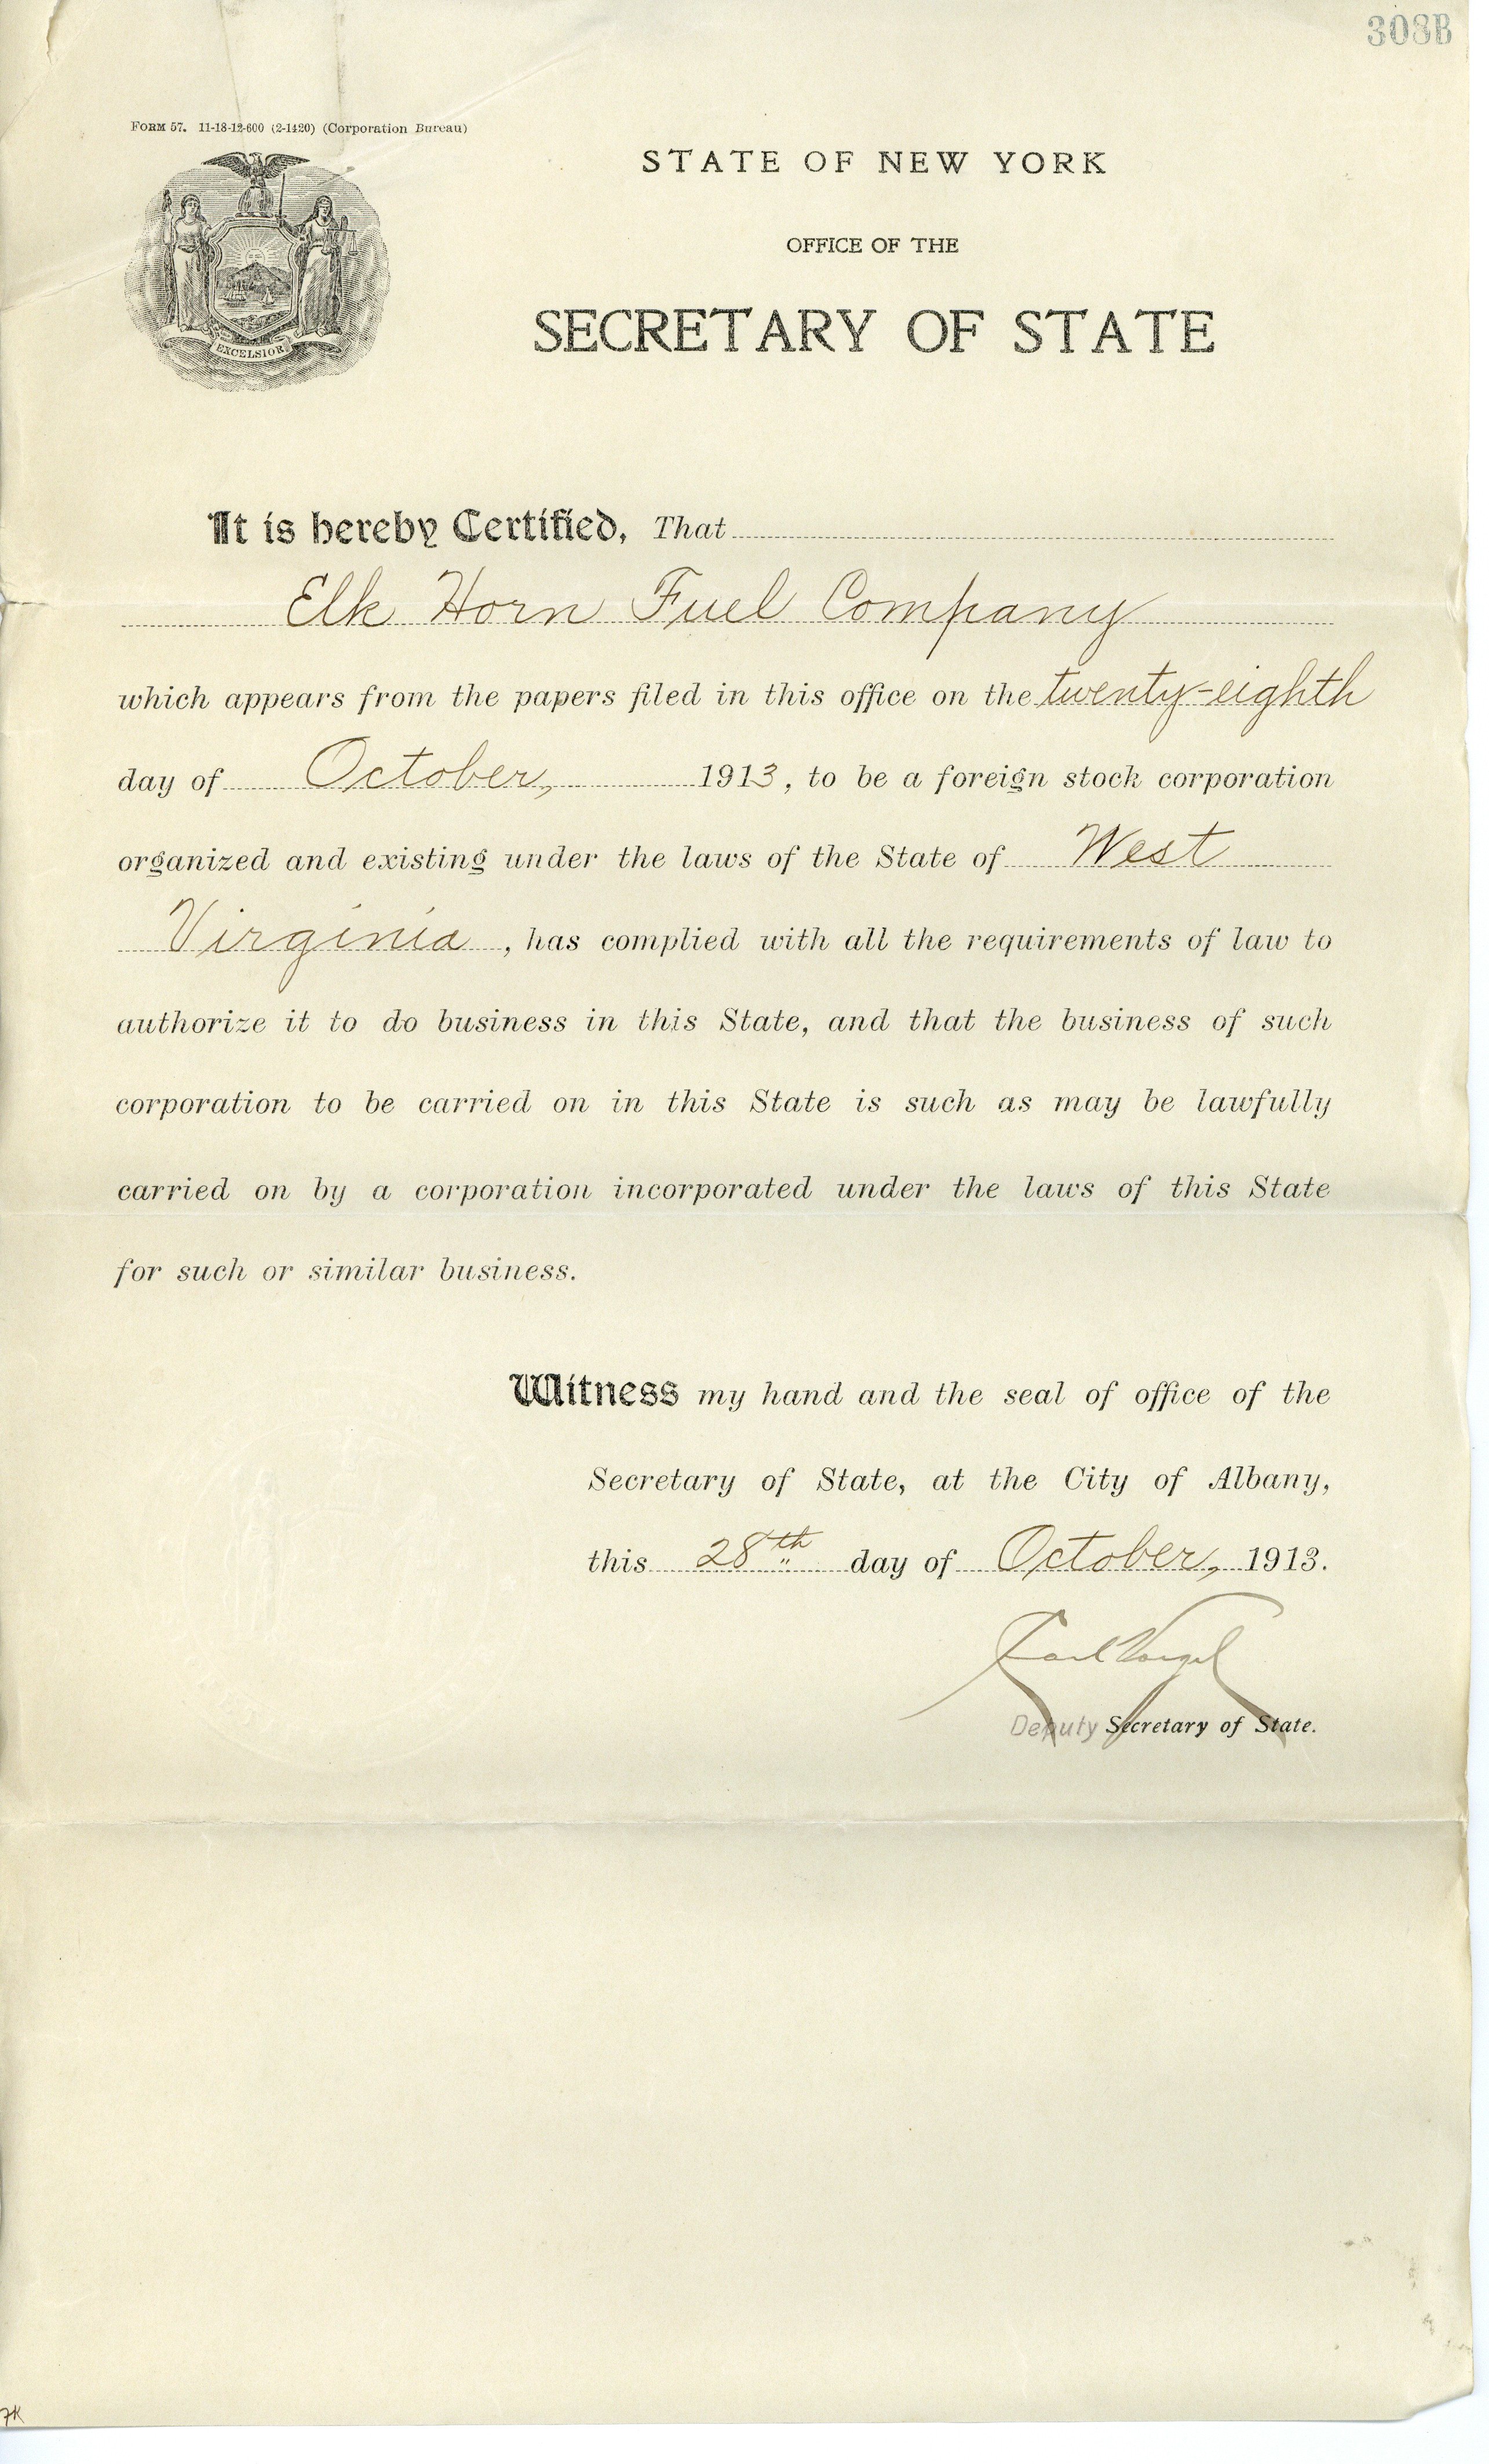 308B
FORM 57. 11-18-12-600 (2-1420) (Corporation Bureau)
EXCELSIOR
STATE OF NEW YORK
OFFICE OF THE
SECRETARY OF STATE
It is hereby Certified, That
Elk Horn Fuel Company
which appears from the papers filed in this office on the twenty-eighth
day of October, 1913, to be a foreign stock corporation
organized and existing under the laws of the State of West
Virginia, has complied with all the requirements of law to
authorize it to do business in this State, and that the business of such
corporation to be carried on in this State is such as may be lawfully
carried on by a corporation incorporated under the laws of this State
for such or similar business.
Witness my hand and the seal of office of the
Secretary of State, at the City of Albany,
this 28th day of October, 1913.
Deputy Secretary of State.